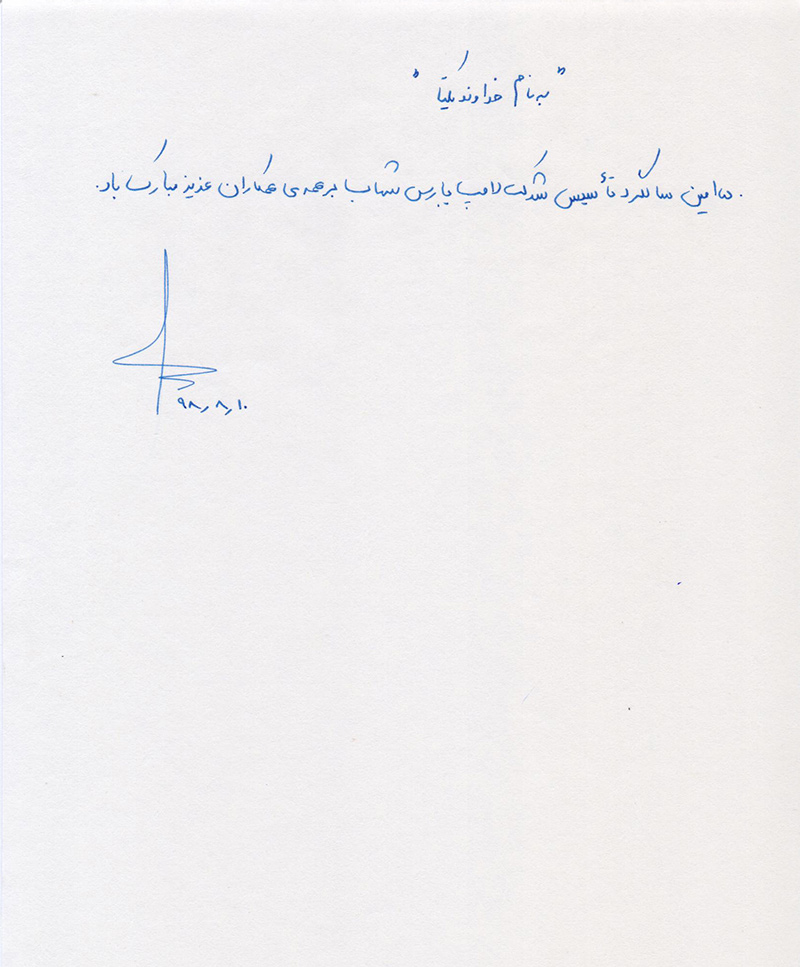 "به نام خداوند یکتا"
۵۰امین سالگرد تأسیس شرکت لامپ پارس شهاب بر همه‌ی همکاران عزیز مبارک باد.
۹۸٫۸٫۱۰